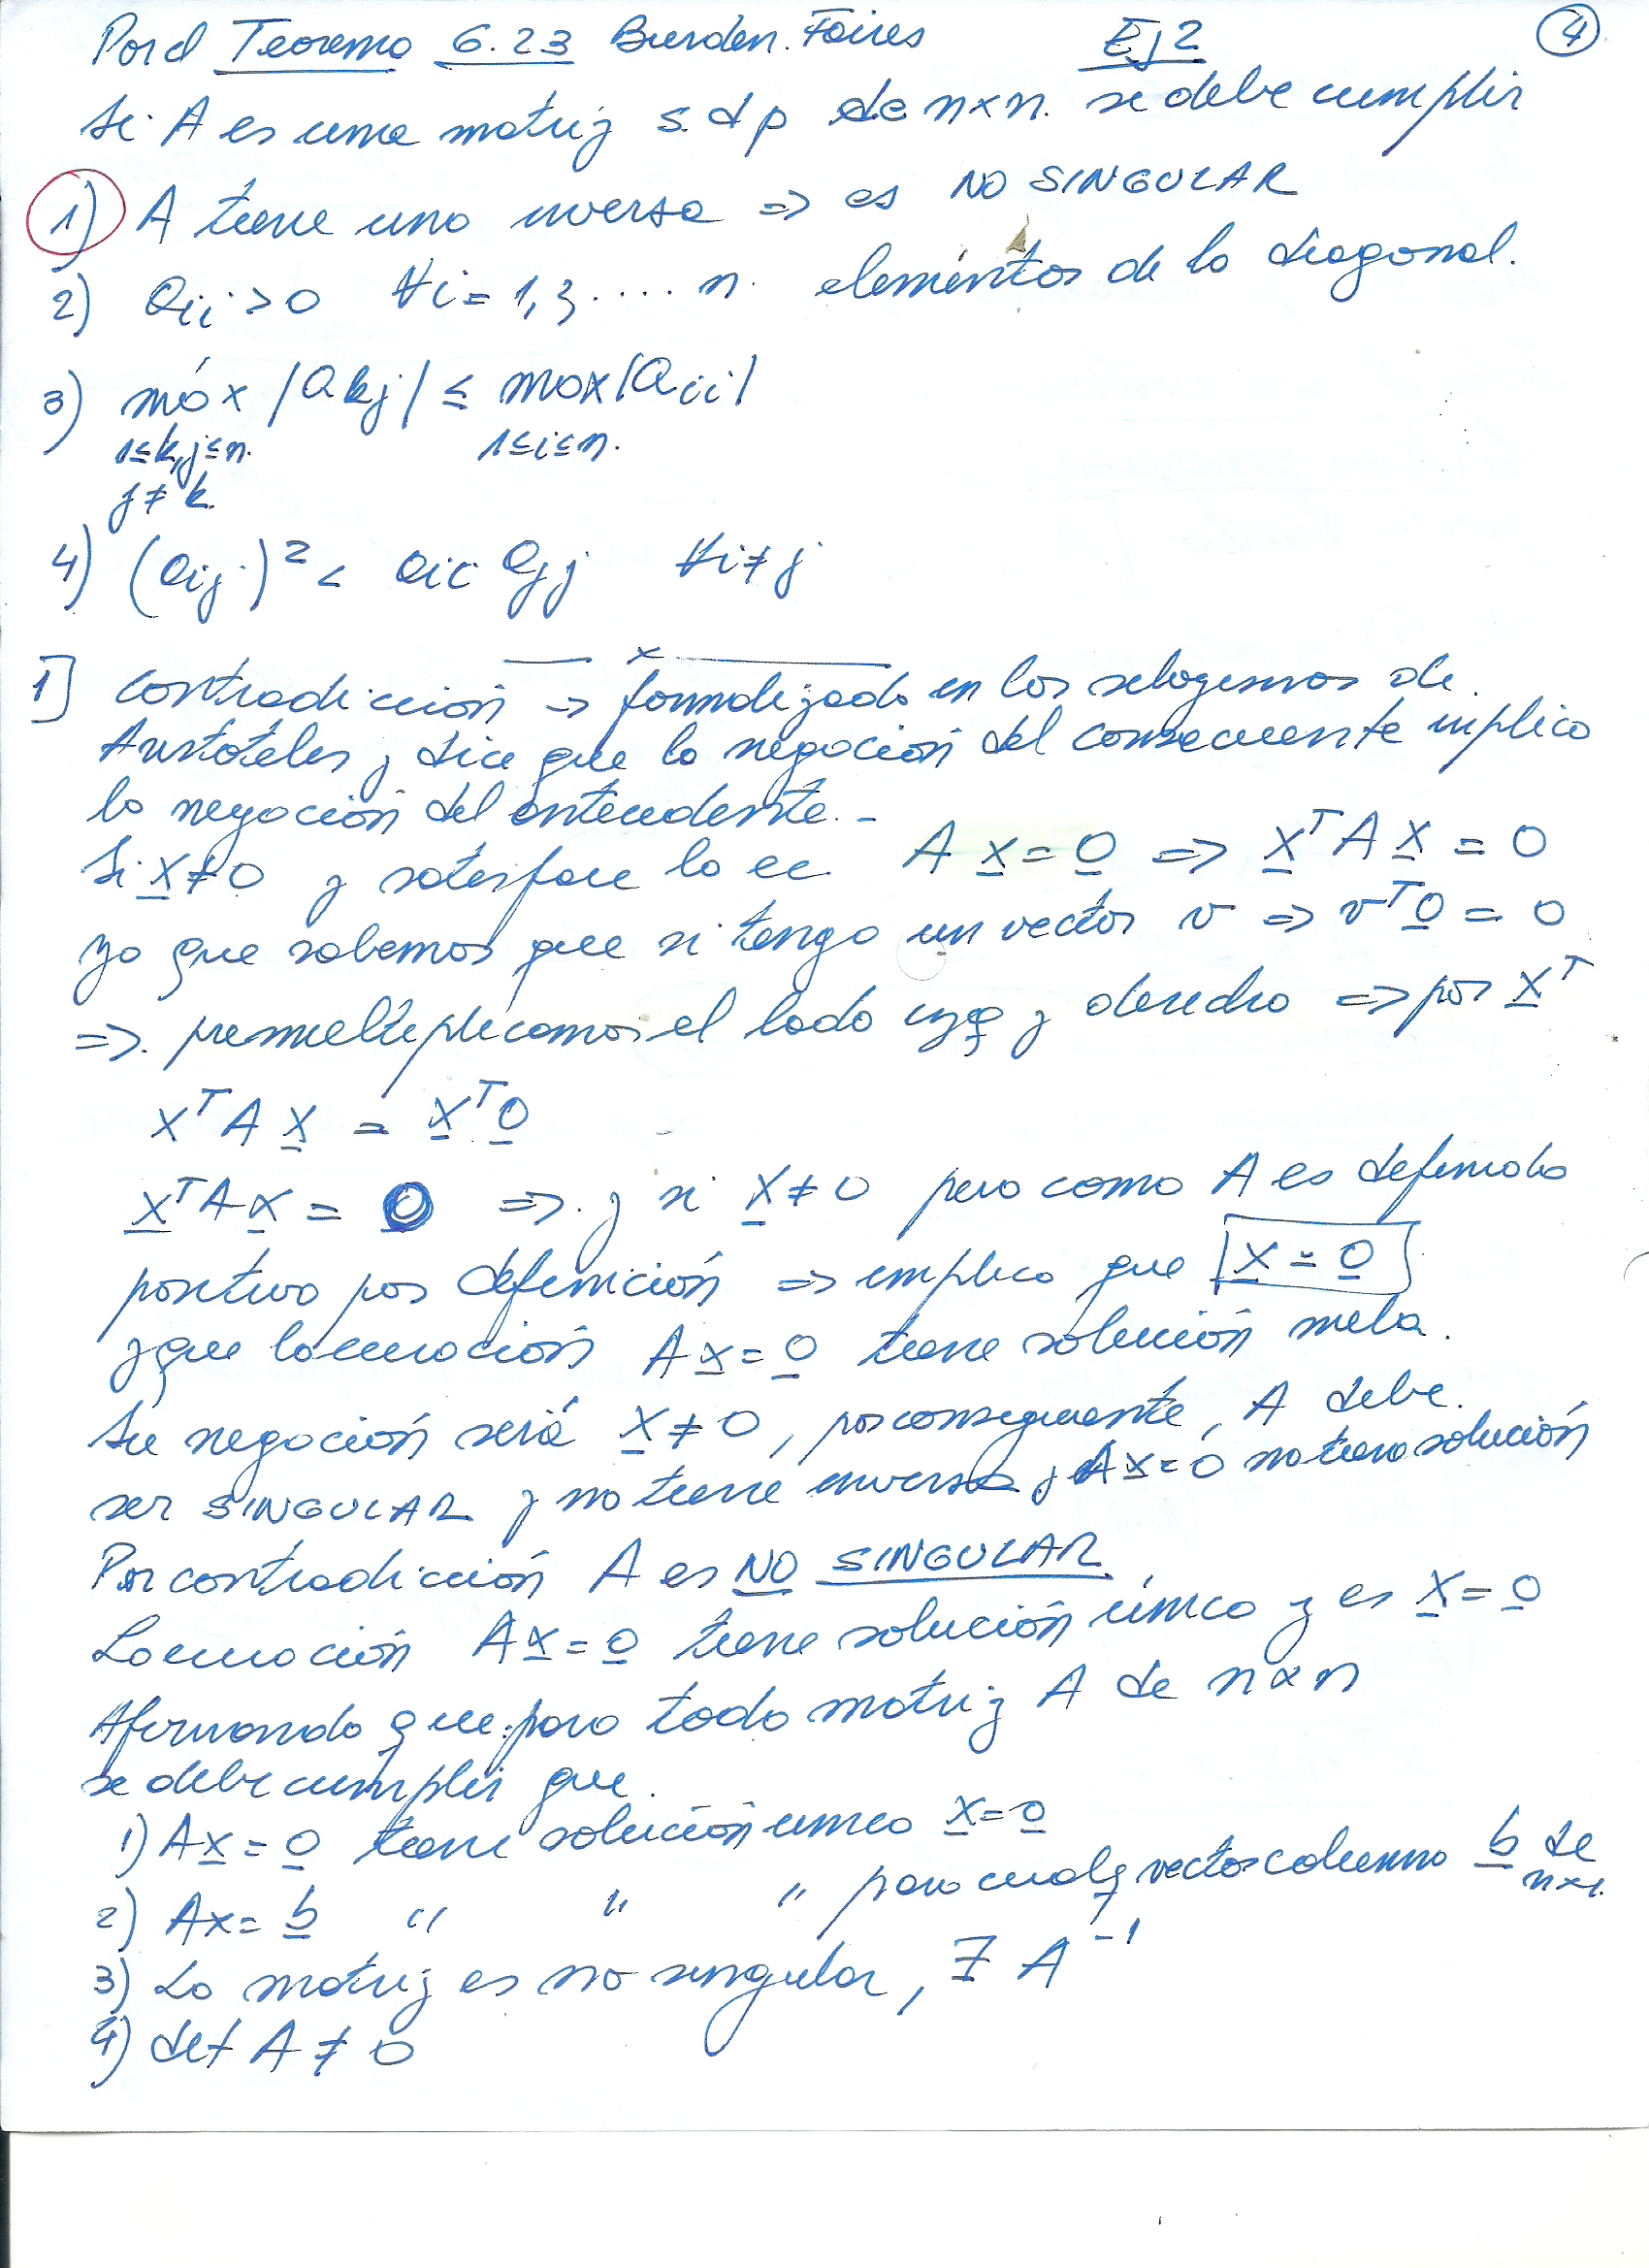 Por el Teorema 6.23 Burden. Faires Ej 2 4
Si A es una matriz s. d p de n×n. se debe cumplir
1) A tiene una inversa => es NO SINGULAR
2) aii > 0 ∀i = 1, 2, .... n. elementos de la diagonal.
3) máx |akj| ≤ max |aii|
1≤k,j≤n. 1≤i≤n.
j≠k.
4) (aij)² < aii ajj ∀i≠j
x
1] Contradicción => formalizada en los silogismos de
Aristóteles y dice que la negación del consecuente implica
la negación del antecedente.-
Si x≠0 y satisface la ec. A x = 0 => xᵀ A x = 0
ya que sabemos que si tengo un vector v => vᵀ0 = 0
=> premultiplicamos el lado izq y derecho => por xᵀ
xᵀ A x = xᵀ0
xᵀ A x = 0 => y si x≠0 pero como A es definida
positiva por definición => implica que x = 0
y que la ecuación A x = 0 tiene solución nula.
Su negación será x≠0, por consiguiente, A debe.
ser SINGULAR y no tiene inversa y A x=0 no tiene solución
Por contradicción A es NO SINGULAR
La ecuación A x = 0 tiene solución única y es x = 0
Afirmando que para toda matriz A de n×n
se debe cumplir que.
1) A x = 0 tiene solución única x=0
2) Ax = b " " " para cualq vector columna b de n×1.
3) La matriz es no singular, ∃ A⁻¹
4) det A ≠ 0